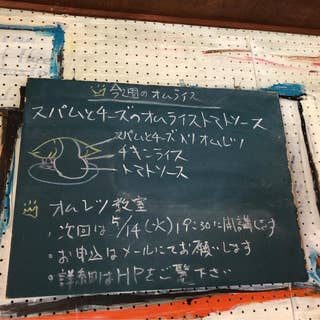 今週のオムライス
スパムとチーズのオムライストマトソース
スパムとチーズ入りオムレツ
チキンライス
トマトソース
オムレツ教室
・次回は5/14(火)19:30に開講します
・お申込はメールにてお願いします
・詳細はHPをご覧下さい